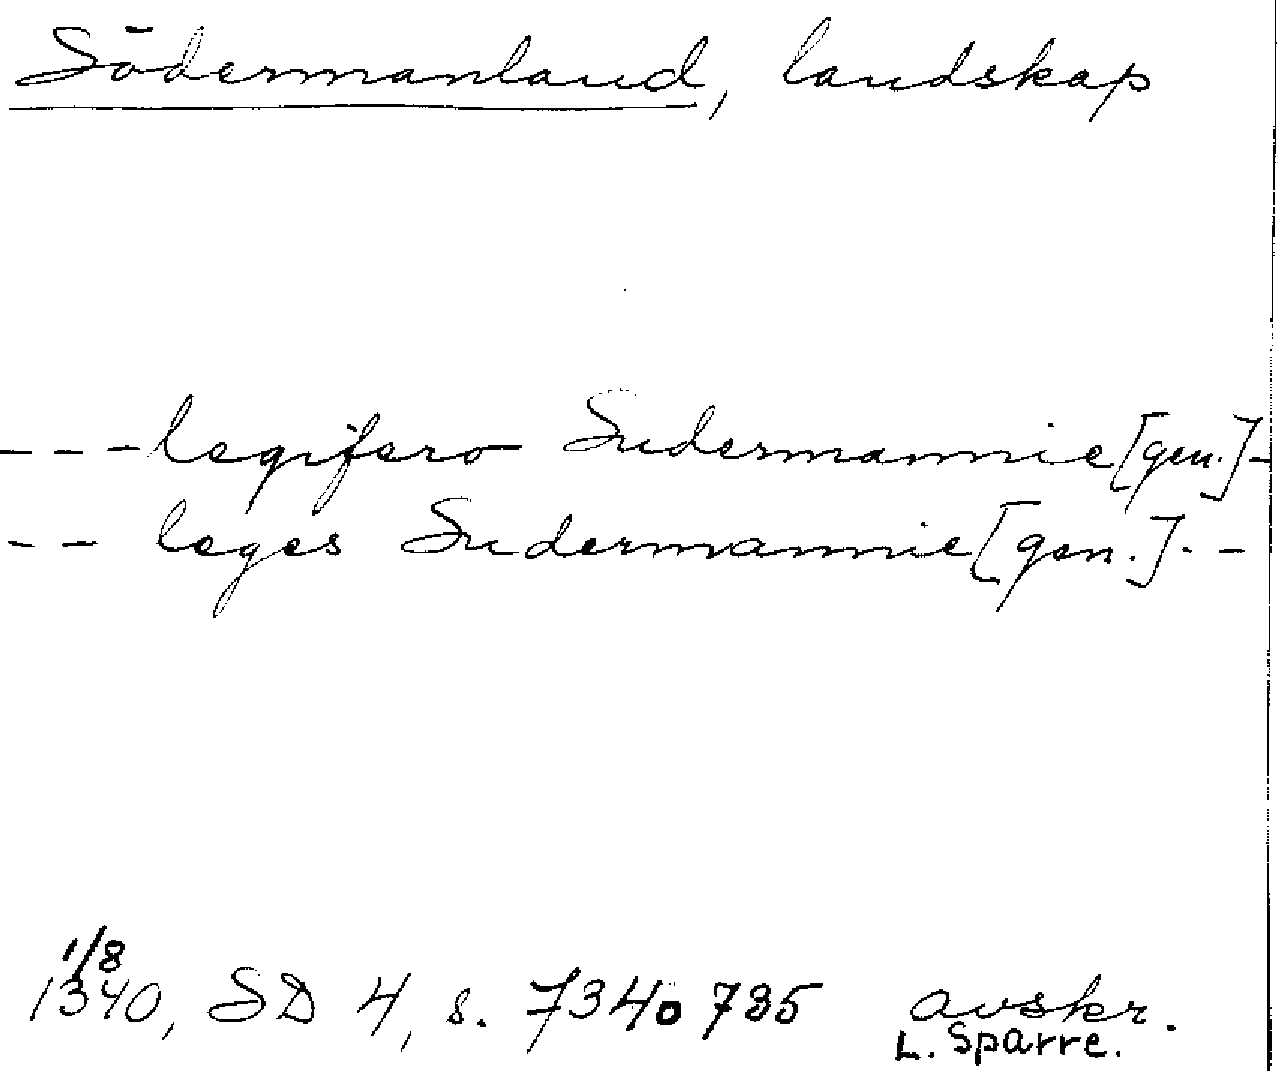 Södermanland, landskap
--- legifero Sudermannie [gen.] -
-- leges Sudermannie [gen.] --
1/8
1340, SD 4, s. 734 o 735 avskr.
L. Sparre.